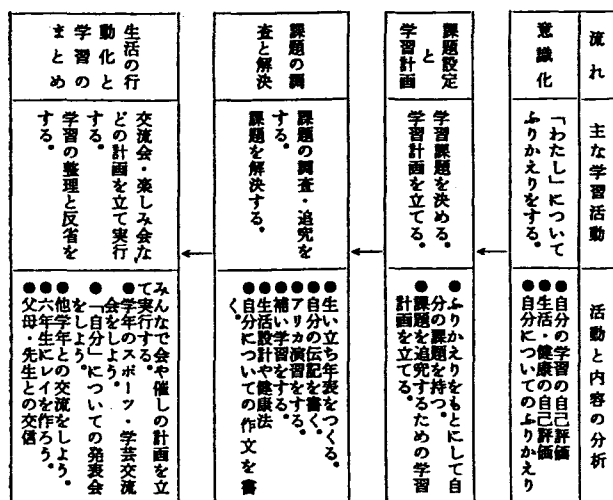 流れ
主な学習活動
活動と内容の分析
意識化
「わたし」について
ふりかえりをする。
●自分の学習の自己評価
●生活・健康の自己評価
●自分についてのふりかえり
課題設定
と
学習計画
学習課題を決める。
学習計画を立てる。
●ふりかえりをもとにして自
分の課題を持つ。
●課題を追究するための学習
計画を立てる。
課題の調
査と解決
課題の調査・追究を
する。
課題を解決する。
●生い立ち年表をつくる。
●自分の伝記を書く。
●アリカ演習をする。
●補い学習をする。
●生活設計や健康法
●自分についての作文を書
く。
生活の行
動化と
学習の
まとめ
交流会・楽しみ会な
どの計画を立て実行
する。
学習の整理と反省を
する。
みんなで会や催しの計画を立
て実行する。
●学年のスポーツ・学芸交流
会をしよう。
●「自分」についての発表会
をしよう。
●他学年との交流をしよう。
●六年生にレイを作ろう。
●父母・先生との交信